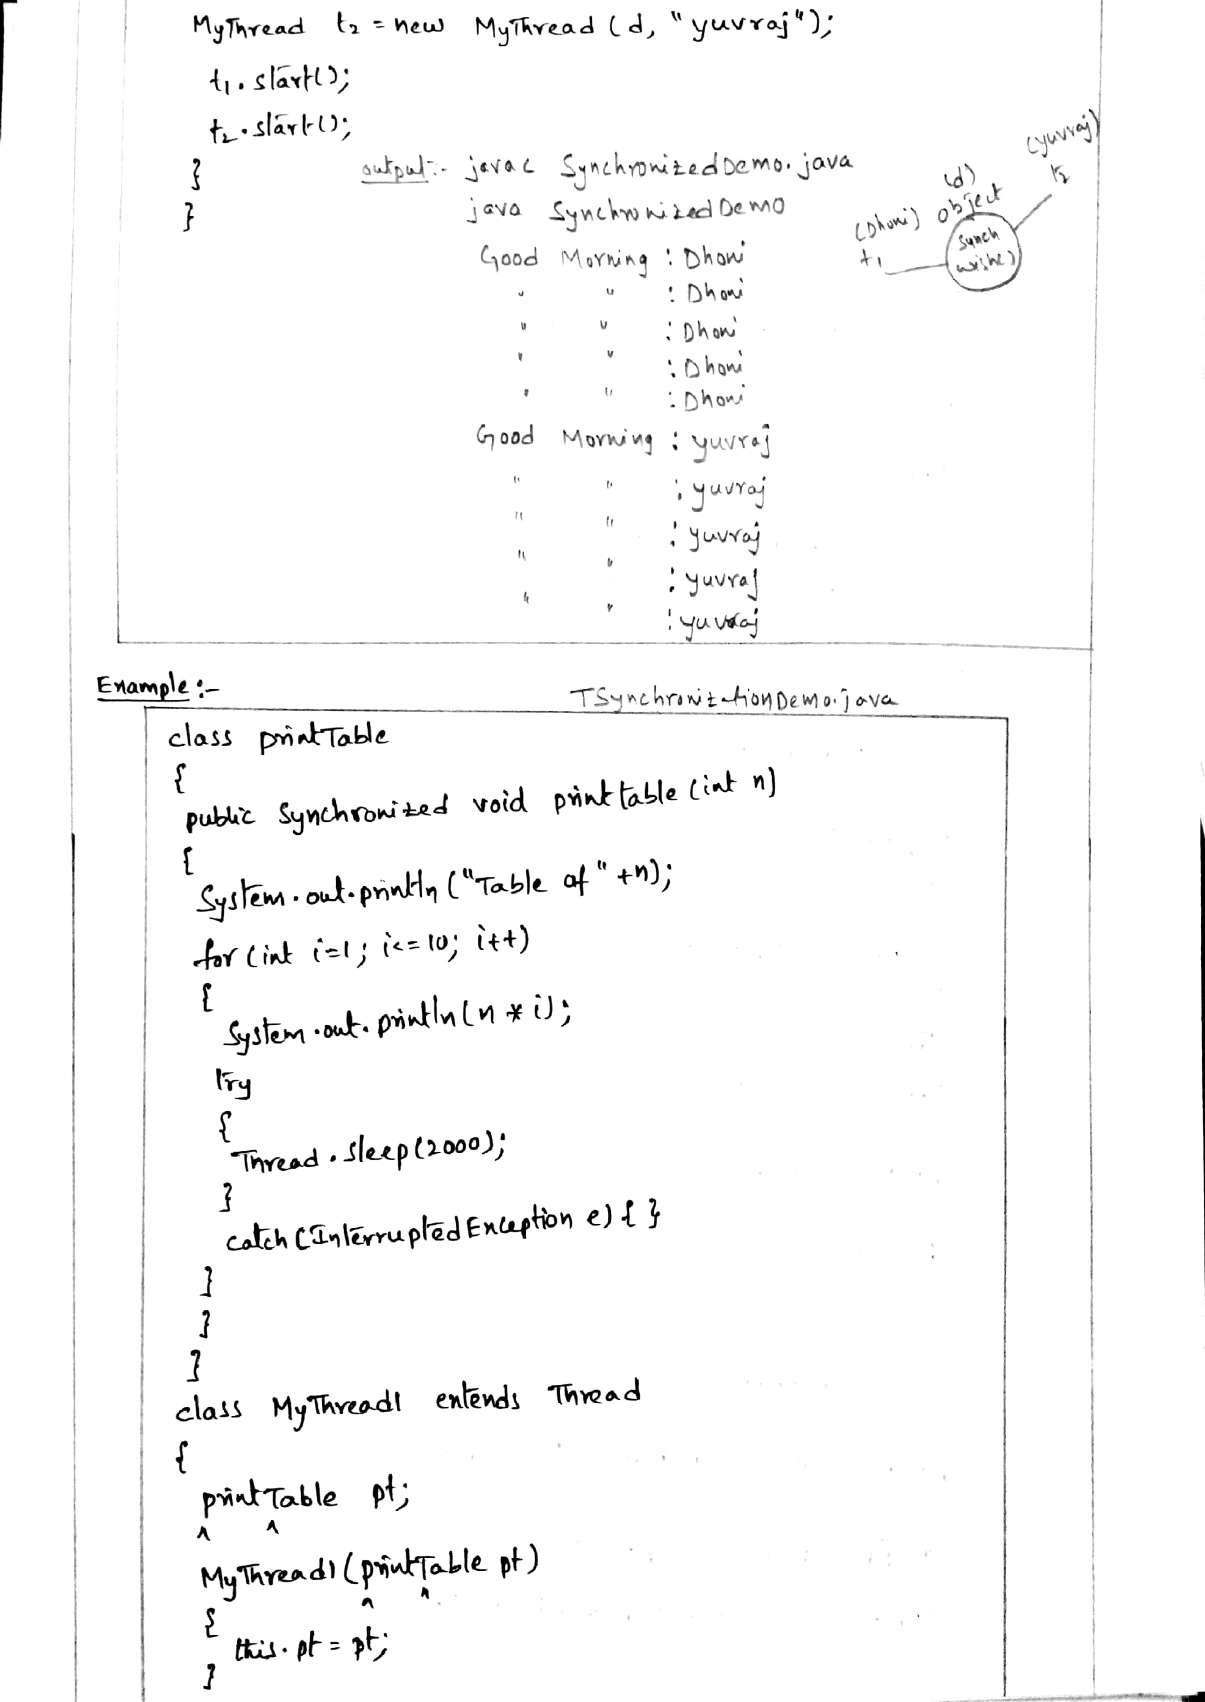 MyThread t2 = new MyThread (d, "yuvraj");
t1.start();
t2.start();
}
}
output:- javac SynchronizedDemo.java
java SynchronizedDemo
Good Morning : Dhoni
" " : Dhoni
" " : Dhoni
" " : Dhoni
" " : Dhoni
Good Morning : yuvraj
" " : yuvraj
" " : yuvraj
" " : yuvraj
" " : yuvraj
(yuvraj)
t2
(d)
(Dhoni) object
t1
Synch
wishe)
Example :-
TSynchronizationDemo.java
class printTable
{
public Synchronized void printtable (int n)
{
System.out.println ("Table of " +n);
for (int i=1; i<=10; i++)
{
System.out.println(n * i);
try
{
Thread.sleep(2000);
}
catch (InterruptedException e) { }
}
}
}
class MyThread1 extends Thread
{
printTable pt;
^ ^
MyThread1 (printTable pt)
^ ^
{
this.pt = pt;
}